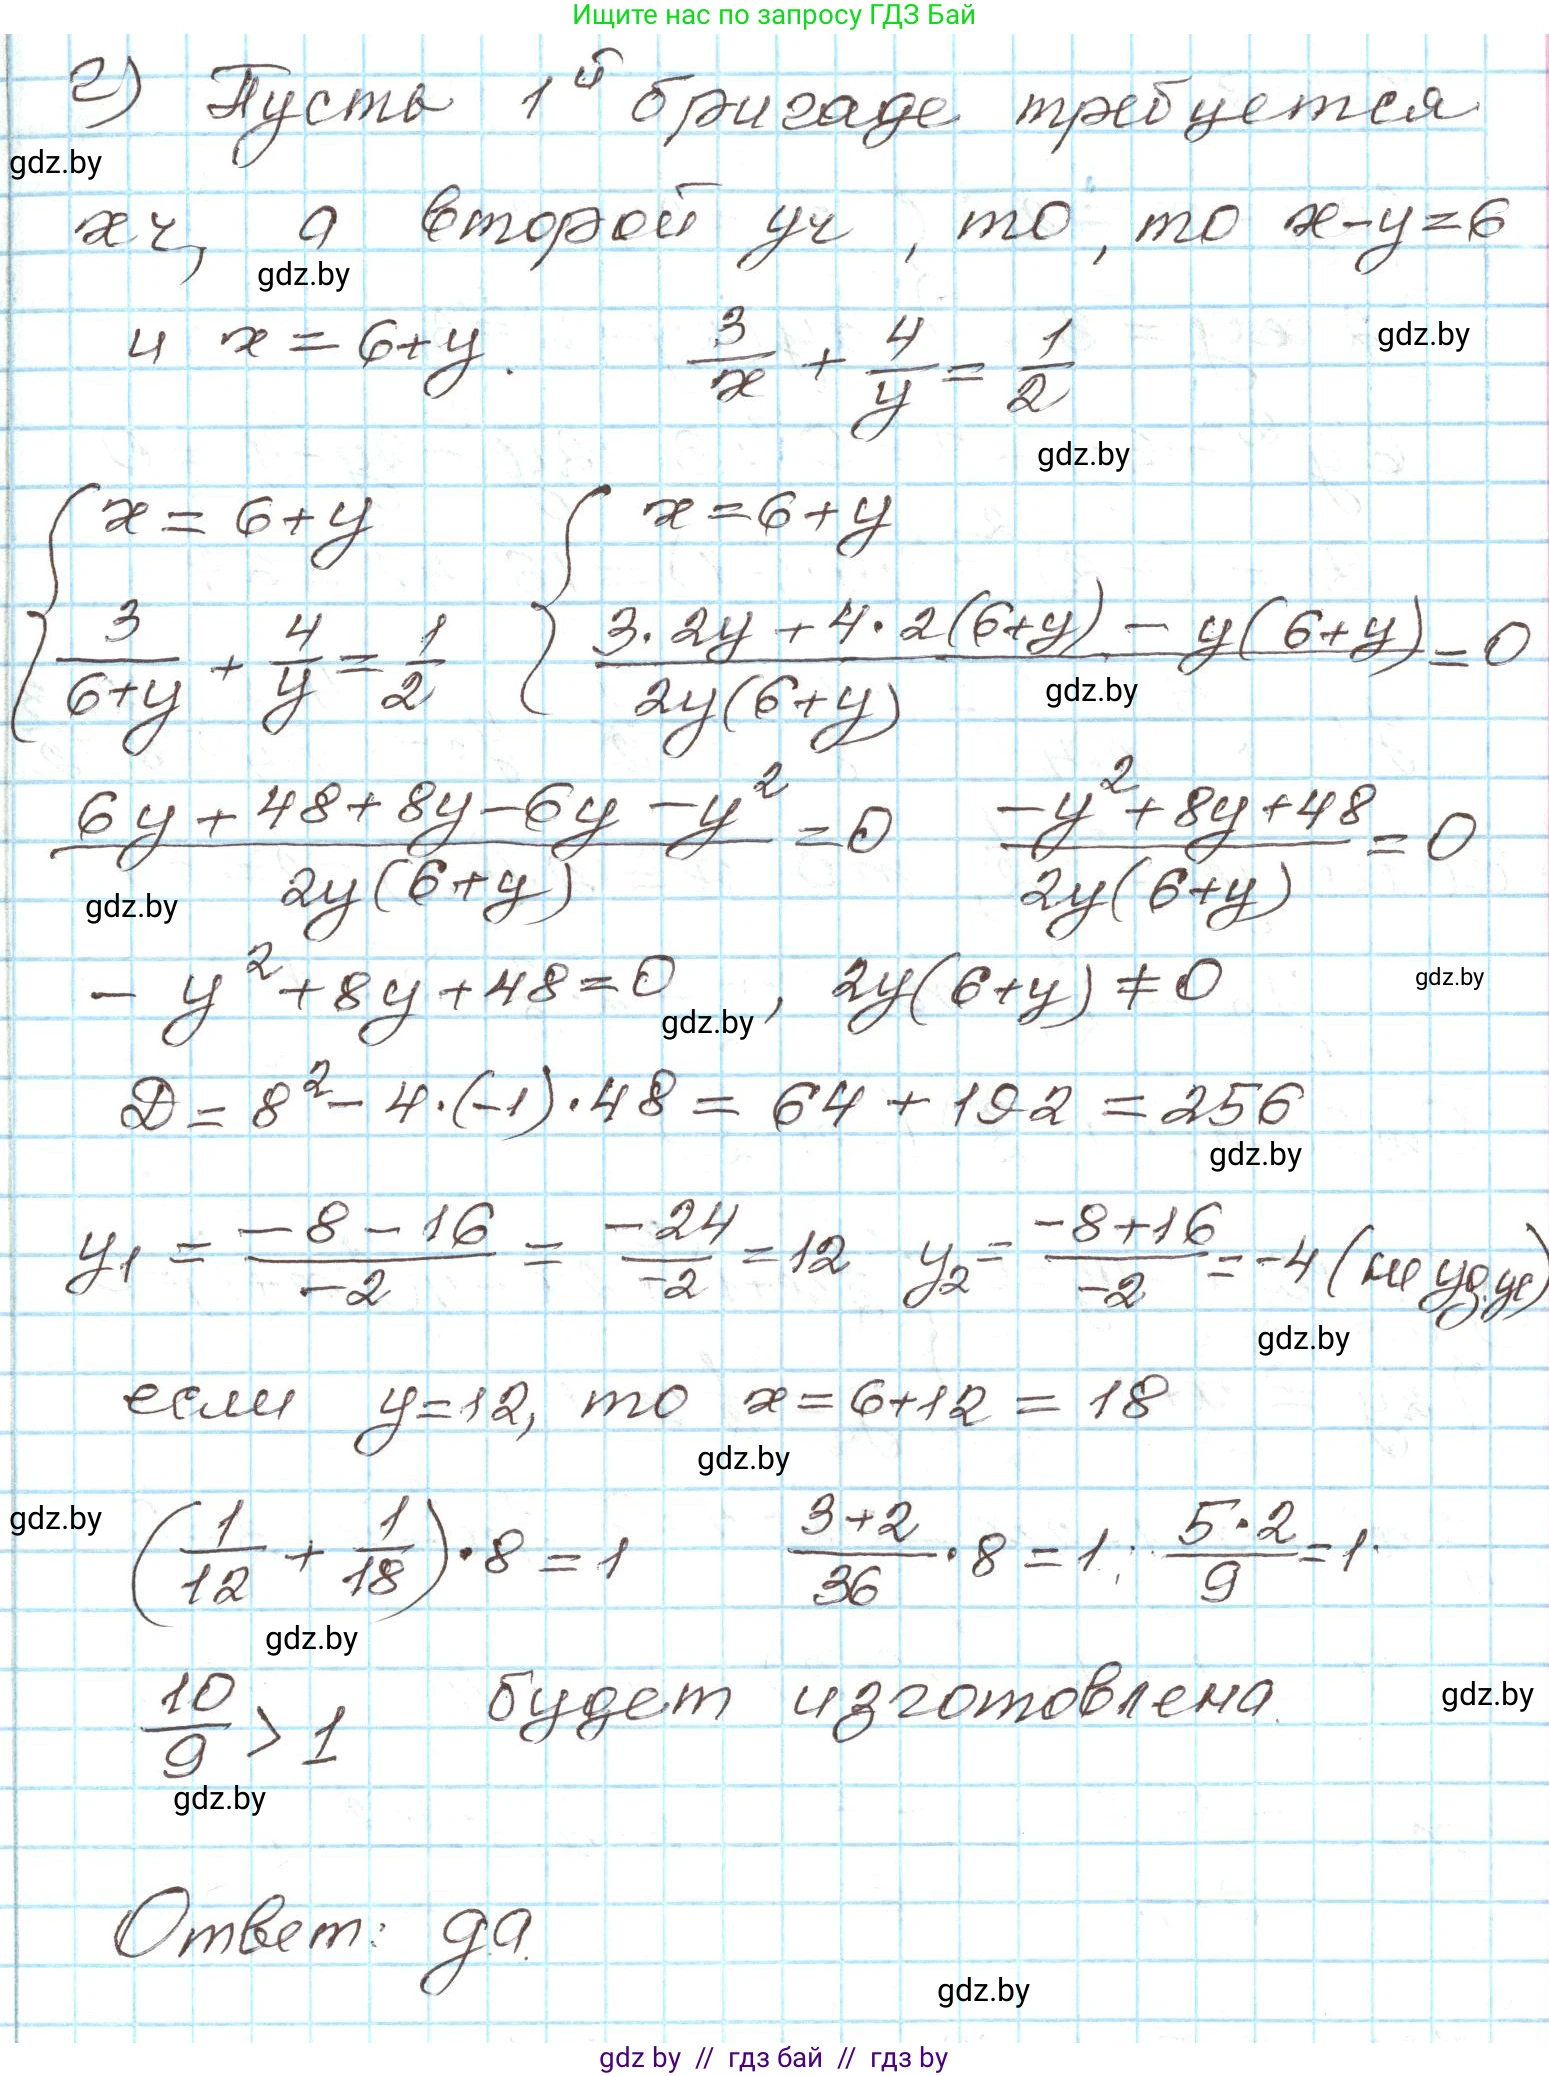 Ищите нас по запросу ГДЗ Бай
г) Пусть 1й бригаде требуется
gdz.by
x ч, а второй y ч, то, то x-y=6
gdz.by
и x = 6+y. 3/x + 4/y = 1/2
gdz.by
gdz.by
{ x = 6+y { x = 6+y
3/(6+y) + 4/y = 1/2 (3·2y + 4·2(6+y) - y(6+y))/(2y(6+y)) = 0
gdz.by
(6y + 48 + 8y - 6y - y²)/(2y(6+y)) = 0 (-y² + 8y + 48)/(2y(6+y)) = 0
gdz.by
- y² + 8y + 48 = 0, 2y(6+y) ≠ 0
gdz.by
gdz.by
D = 8² - 4·(-1)·48 = 64 + 192 = 256
gdz.by
y₁ = (-8-16)/-2 = -24/-2 = 12 y₂ = (-8+16)/-2 = -4 (не уд. ус)
gdz.by
если y=12, то x = 6+12 = 18
gdz.by
gdz.by
(1/12 + 1/18)·8 = 1 (3+2)/36 · 8 = 1; (5·2)/9 = 1
gdz.by
10/9 > 1 будет изготовлена
gdz.by
gdz.by
Ответ: да.
gdz.by
gdz by // гдз бай // гдз by